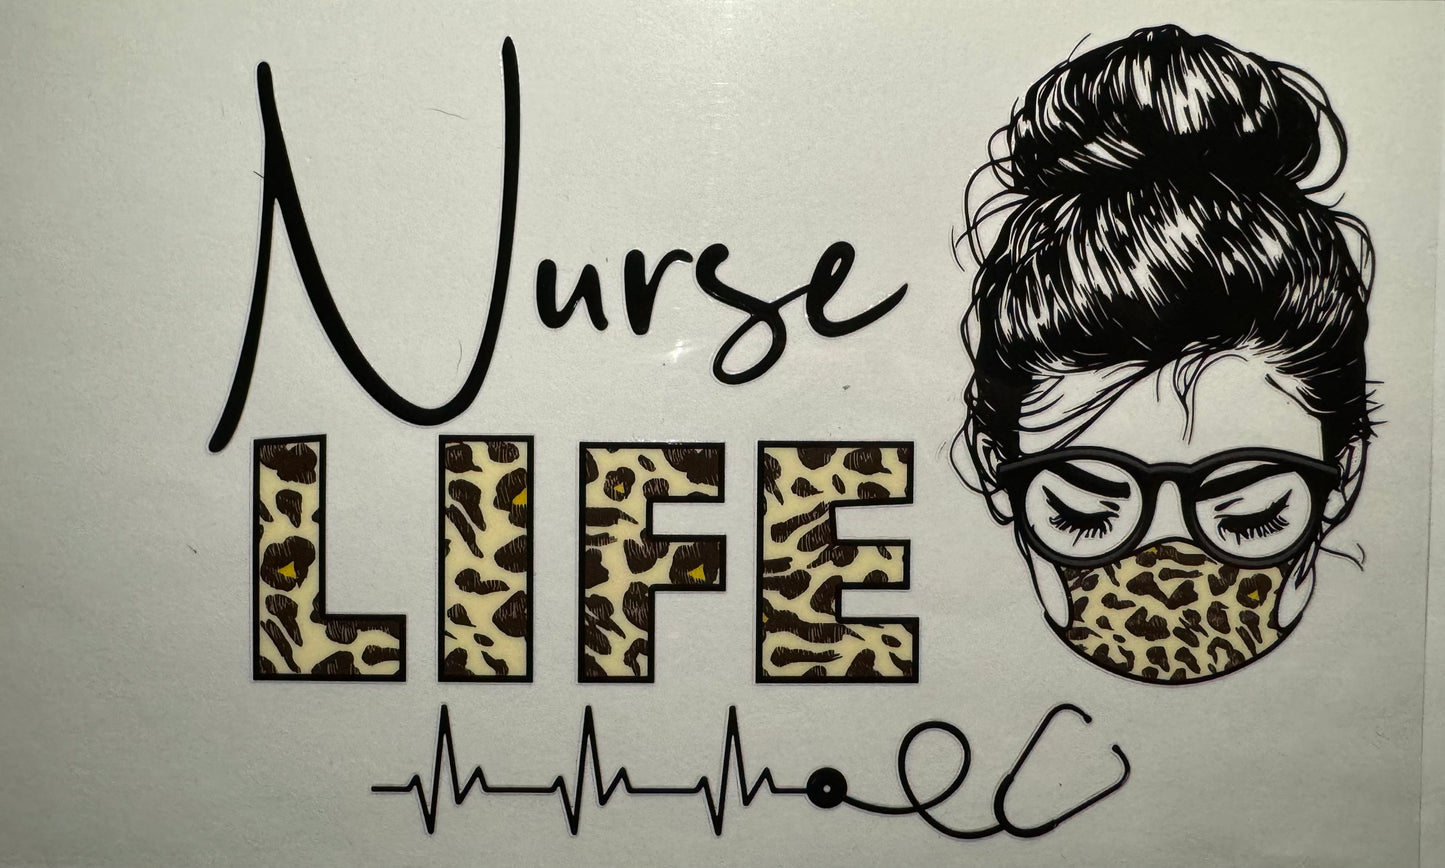 Nurse
LIFE